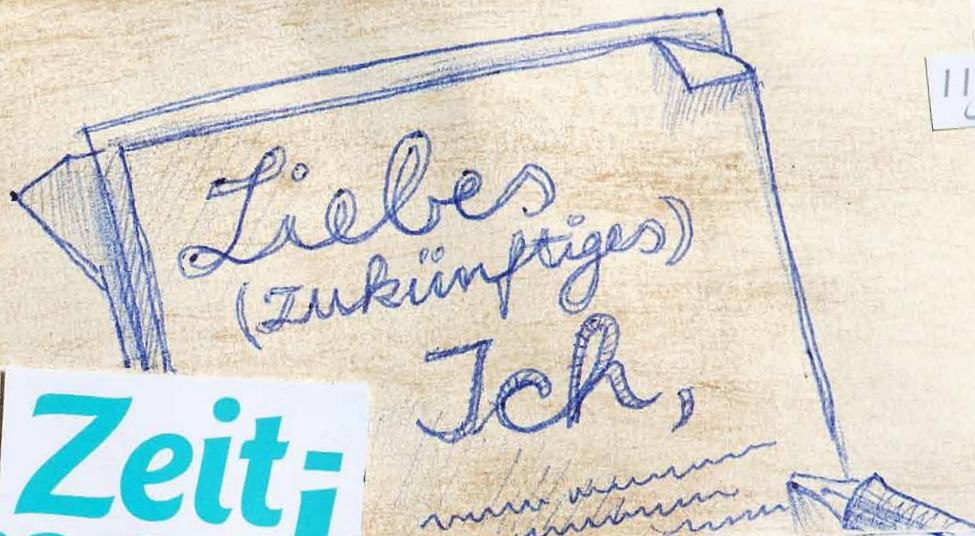 Liebes
(zukünftiges)
Ich,
Zeit-